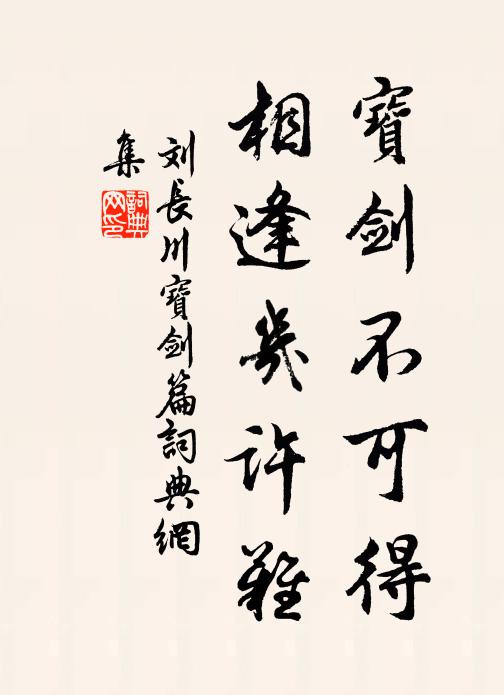 寶剑不可得
相逢幾許難
刘長川寶劍篇詞典網
集
詞典
网印